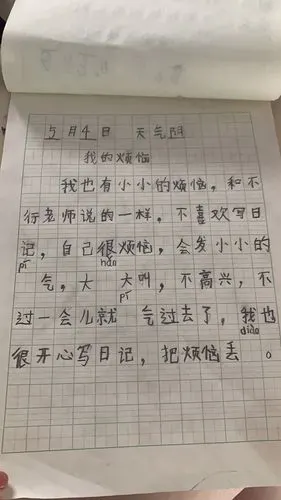 5月4日 天气阴
我的烦恼
我也有小小的烦恼，和不
行老师说的一样。不喜欢写日
记，自己很烦恼，会发小小的
pí hǎn
气，大 大叫，不高兴，不
pí
过一会儿就 气过去了，我也
diào
很开心写日记，把烦恼丢 。